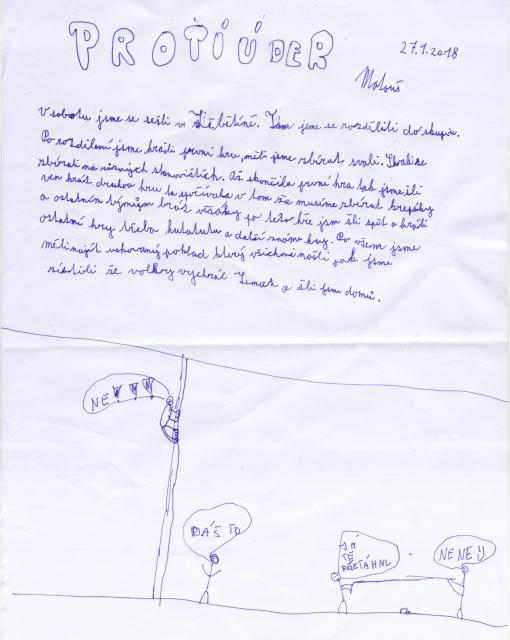 PROTIÚDER
27.1.2018
Matouš
V sobotu jsme se sešli v Žebětíně. Tam jsme se rozdělili do skupin.
Po rozdělení jsme hráli první hru, měli jsme sbírat svali. Svali se
sbírali na různých stanovištích. Až skončila první hra tak jsme šli
ven hrát druhou hru ta spočívala v tom že musíme sbírat krepáky
a ostatním týmům brát po této hře jsme šli spět a hráli
ostatní hry třeba kutululu a další známe hry. Po všem jsme
měli najít uskovaný poklad který všichni našli pak jsme
zistili že volkry vyhrál Temach a šli jsme domů.
NE
DÁŠ TO
JÁ
TĚ
PŘETÁHNL
NE NE Ý